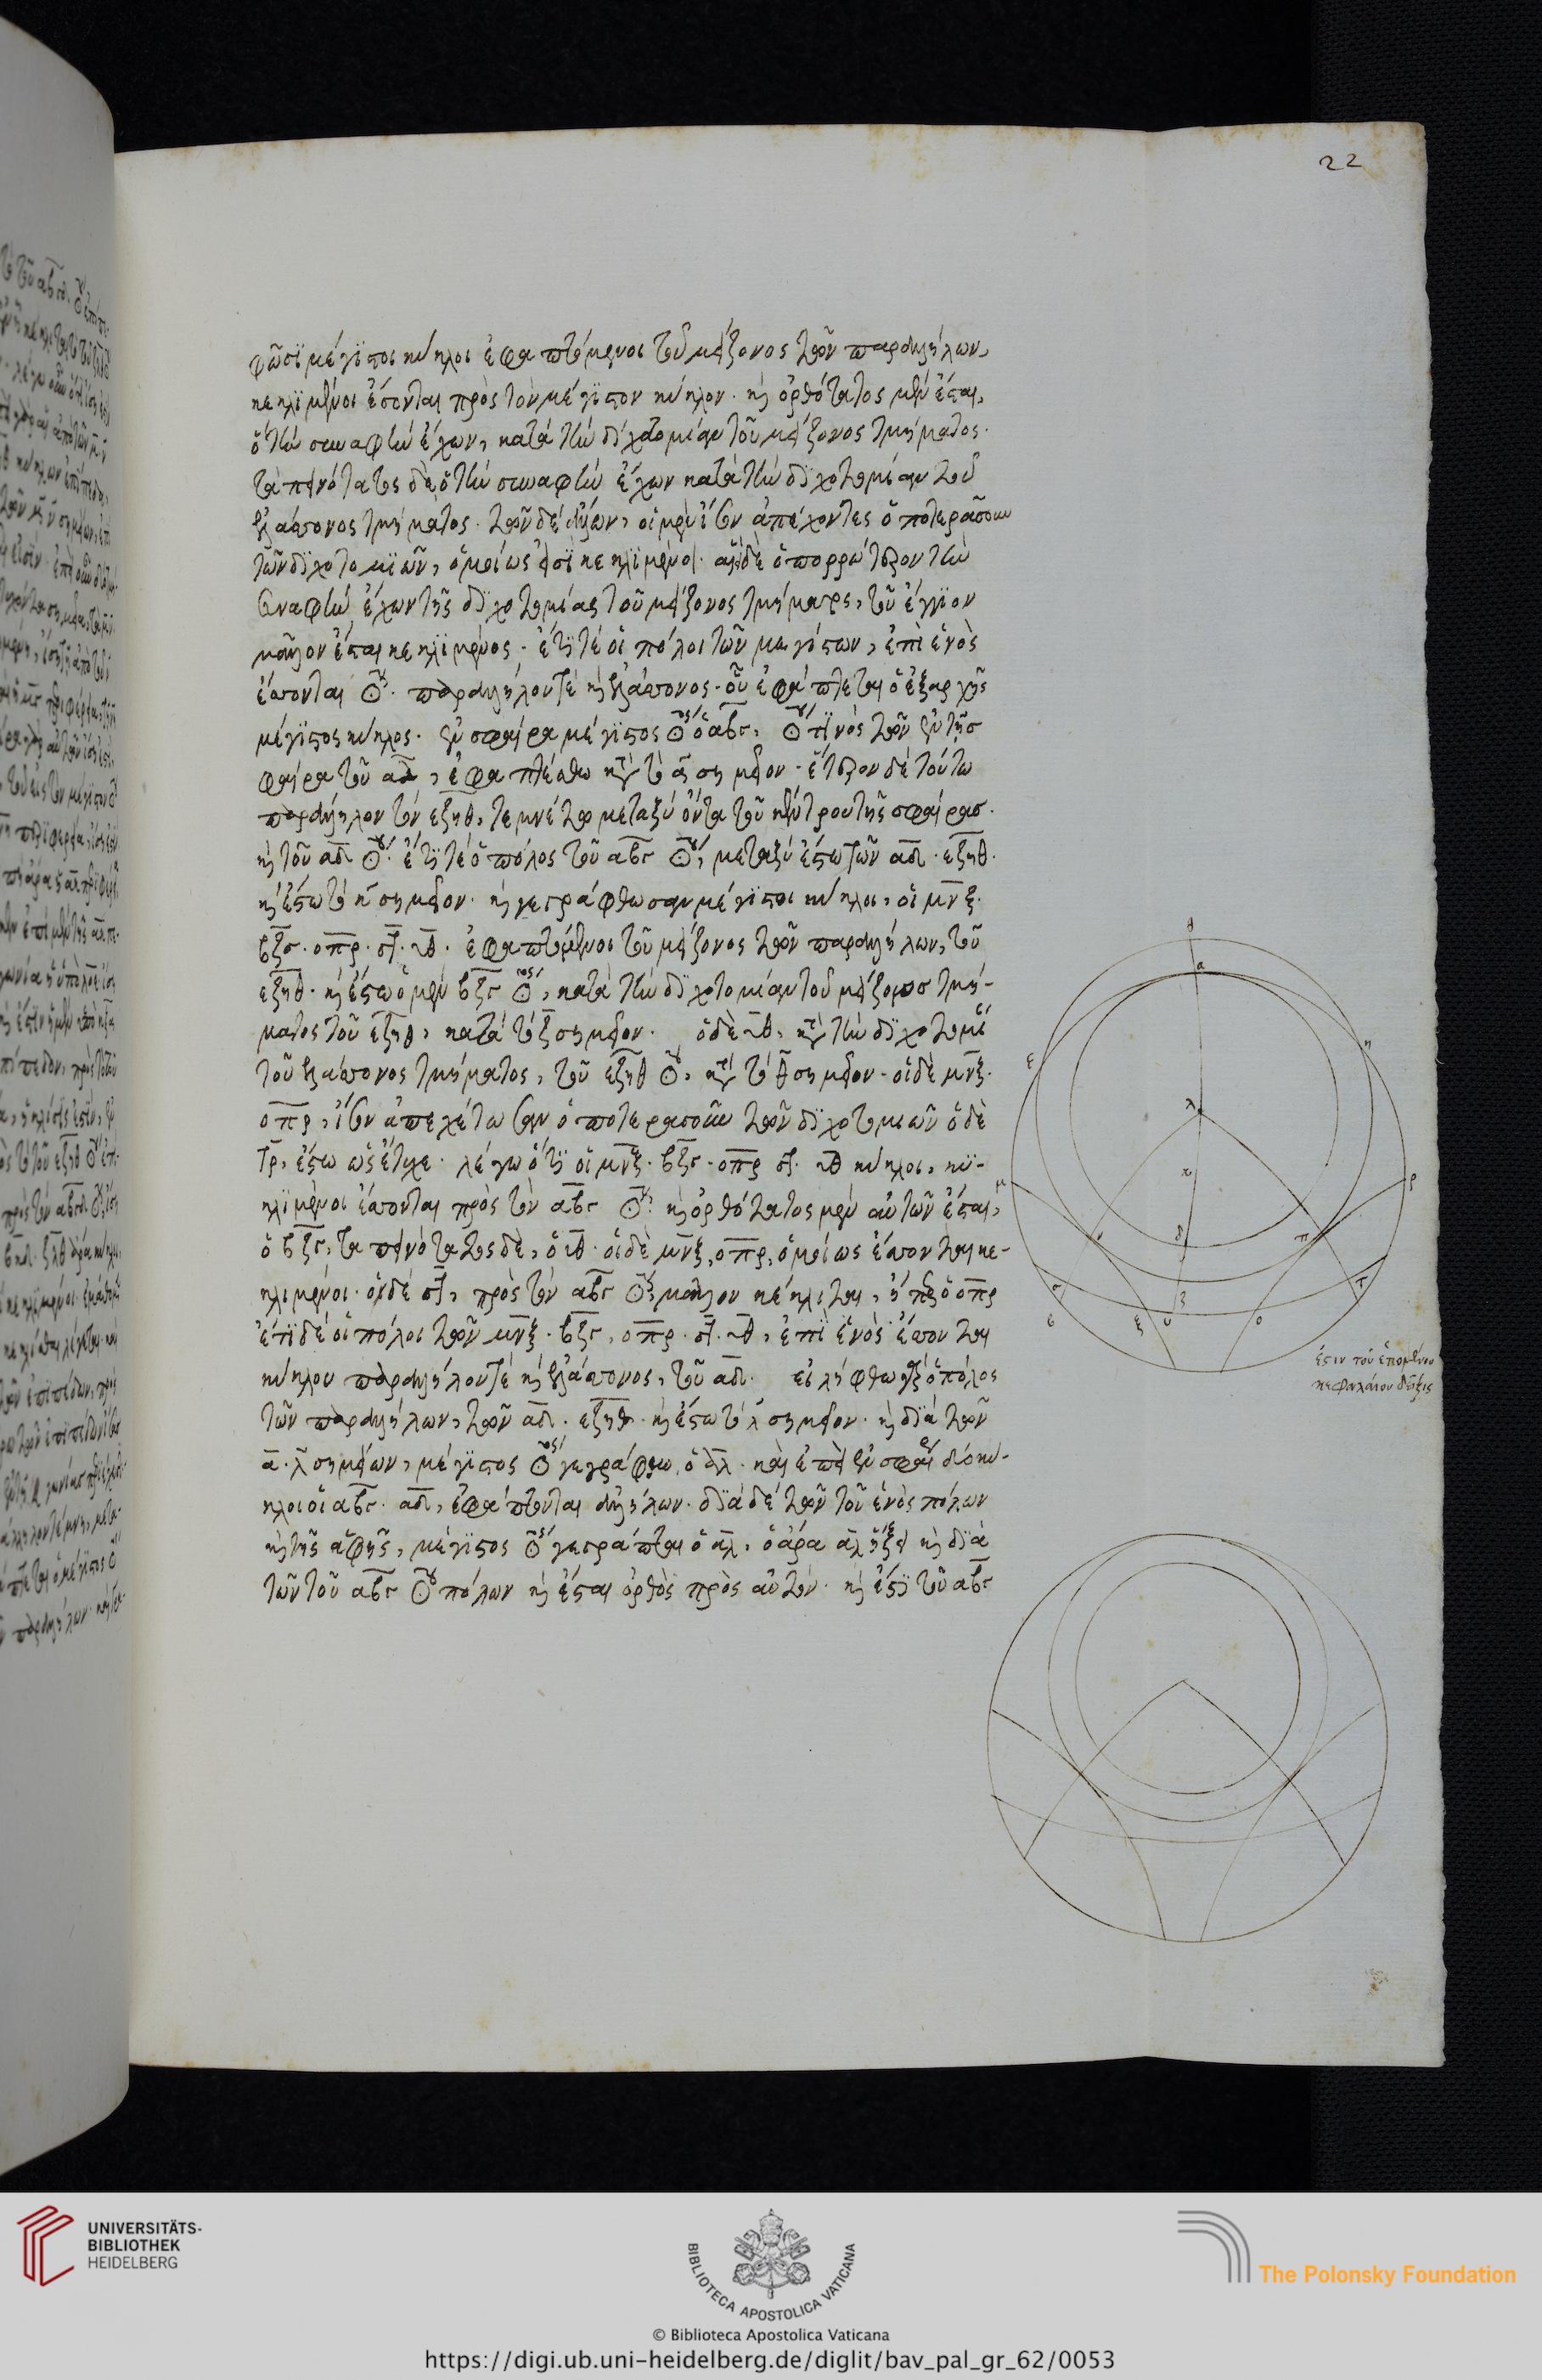 22
φῶσϊ μέγϊστοι κύκλοι ἐφαπτόμενοι τοῦ μείζονος τῶν παραλλήλων,
κεκλϊμένοι ἔσονται πρὸς τὸν μέγϊστον κύκλον. καὶ ὀρθότατος μὲν ἔσται,
ὁ τὴν συναφὴν ἔχων, κατὰ τὴν διχοτομίαν τοῦ μείζονος τμήματος.
ταπεινότατος δὲ, ὁ τὴν συναφὴν ἔχων κατὰ τὴν διχοτομίαν τοῦ
ἐλάσσονος τμήματος. τῶν δὲ ἄλλων, οἱ μὲν ἴσον ἀπέχοντες ὁποτερασοῦν
τῶν διχοτομϊῶν, ὁμοίως εἰσὶ κεκλϊμένοι. ἀεὶ δὲ ὁ πορρώτερον τὴν
συναφὴν ἔχων τῆς διχοτομίας τοῦ μείζονος τμήματος, τοῦ ἔγγϊον
μᾶλλον ἔσται κεκλϊμένος. ἔτϊ τὲ οἱ πόλοι τῶν μεγίστων, ἐπὶ ἑνὸς
ἔσονται ☉ου. παραλλήλου τὲ καὶ ἐλάσσονος. οὗ ἐφάπτεται ὁ ἐξαρχῆς
μέγϊστος κύκλος. ἐν σφαίρα μέγϊστος ☉ος ὁ αβγ, ☉ου τϊνὸς τῶν ἐν τῆ σ
φαίρα τοῦ αδ, ἐφαπτέσθω κατὰ τὸ α σημεῖον. ἕτερον δὲ τούτω
παράλληλον τὸν εζηθ, τεμνέτω μεταξὺ ὄντα τοῦ κέντρου τῆς σφαίρας.
καὶ τοῦ αδ ☉ου. ἔτϊ τὲ ὁ πόλος τοῦ αβγ ☉ου, μεταξὺ ἔστω τῶν αδ. εζηθ.
καὶ ἔστω τὸ κ σημεῖον. καὶ γεγράφθωσαν μέγϊστοι κύκλοι, οἱ μνξ.
βζγ. οπρ. στ. υθ. ἐφαπτόμενοι τοῦ μείζονος τῶν παραλλήλων, τοῦ
εζηθ. καὶ ἔστω ὁ μὲν βζγ ☉ος, κατὰ τὴν διχοτομίαν τοῦ μείζονος τμή-
ματος τοῦ εζηθ, κατὰ τὸ ζ σημεῖον. ὁ δὲ υθ, κατὰ τὴν διχοτομί
τοῦ ἐλάσσονος τμήματος, τοῦ εζηθ ☉ου, κατὰ τὸ θ σημεῖον. οἱ δὲ μνξ.
οπρ, ἴσον ἀπεχέτωσαν ὁποτερασοῦν τῶν διχοτομιῶν ὁ δὲ
ἔστω ὡς ἔτυχε. λέγω ὅτϊ οἱ μνξ. βζγ. οπρ στ. υθ κύκλοι, κε-
κλϊμένοι ἔσονται πρὸς τὸν αβγ ☉ον. καὶ ὀρθότατος μὲν αὐτῶν ἔσται,
ὁ βζγ, ταπεινότατος δὲ, ὁ υθ. οἱ δὲ μνξ, οπρ, ὁμοίως ἔσονται κε-
κλιμένοι. ὁ δὲ στ, πρὸς τὸν αβγ ☉ον μᾶλλον κέκλιται, ἤπερ ὁ οπρ
ἔτϊ δὲ οἱ πόλοι τῶν μνξ. βζγ, οπρ. στ. υθ, ἐπὶ ἑνὸς ἔσονται
κύκλου παραλλήλου τὲ καὶ ἐλάσσονος, τοῦ αδ. εἰλήφθω γὰρ ὁ πόλος
τῶν παραλλήλων, τῶν αδ. εζηθ. καὶ ἔστω τὸ λ σημεῖον. καὶ διὰ τῶν
α. λ σημείων, μέγϊστος ☉ος γεγράφθω, ὁ αλ. καὶ ἐπεὶ ἐν σφαίρα δύο κύ-
κλοι οἱ αβγ. αδ, ἐφάπτονται ἀλλήλων. διὰ δὲ τῶν τοῦ ἑνὸς πόλων
καὶ τῆς ἁφῆς, μέγϊστος ☉ος γέγραπται ὁ αλ, ὁ ἄρα αλ ἥξει καὶ διὰ
τῶν τοῦ αβγ ☉ου πόλων καὶ ἔσται ὀρθὸς πρὸς αὐτὸν. καὶ ἐστὶ τοῦ αβγ
θ
α
ε
η
λ
κ
μ
ρ
ν
δ
π
σ
τ
ζ
β
ξ
υ
ο
ἔστιν τοῦ ἑπομένου
κεφαλαίου δεῖξις
UNIVERSITÄTS-
BIBLIOTHEK
HEIDELBERG
BIBLIOTECA APOSTOLICA VATICANA
The Polonsky Foundation
© Biblioteca Apostolica Vaticana
https://digi.ub.uni-heidelberg.de/diglit/bav_pal_gr_62/0053